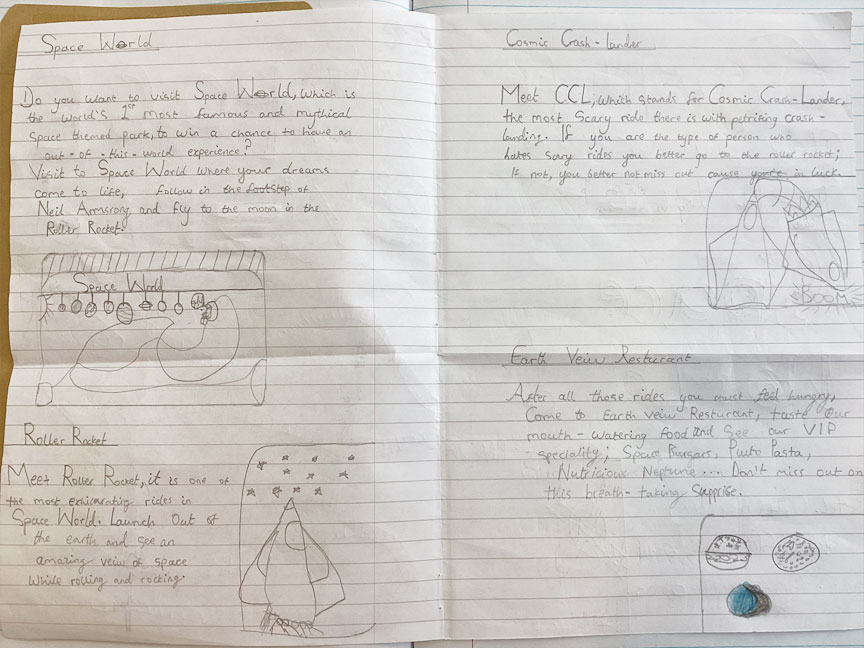 Space World
Do you want to visit Space World, which is
the world's 1st most famous and mythical
space themed park, to win a chance to have an
out-of-this-world experience?
Visit to Space World where your dreams
come to life, follow in the footstep of
Neil Armsrong and fly to the moon in the
Roller Rocket.
Space World
Roller Rocket
Meet Roller Rocket, it is one of
the most exhicarating rides in
Space World. Launch Out of
the earth and see an
amazing veiw of space
while rolling and rocking.
Cosmic Crash-lander
Meet CCL, which stands for Cosmic Crash-Lander,
the most scary ride there is with petrifing crash-
landing. If you are the type of person who
hates scary rides you better go to the roller rocket;
if not, you better not miss out cause you're in luck.
BOOM
Earth Veiw Resturant
After all those rides you must feel hungry,
Come to Earth veiw Resturant, taste our
mouth-watering food and see our VIP
speciality; Space Burgars, Pluto Pasta,
Nutricious Neptune... Don't miss out on
this breath-taking Supprise.